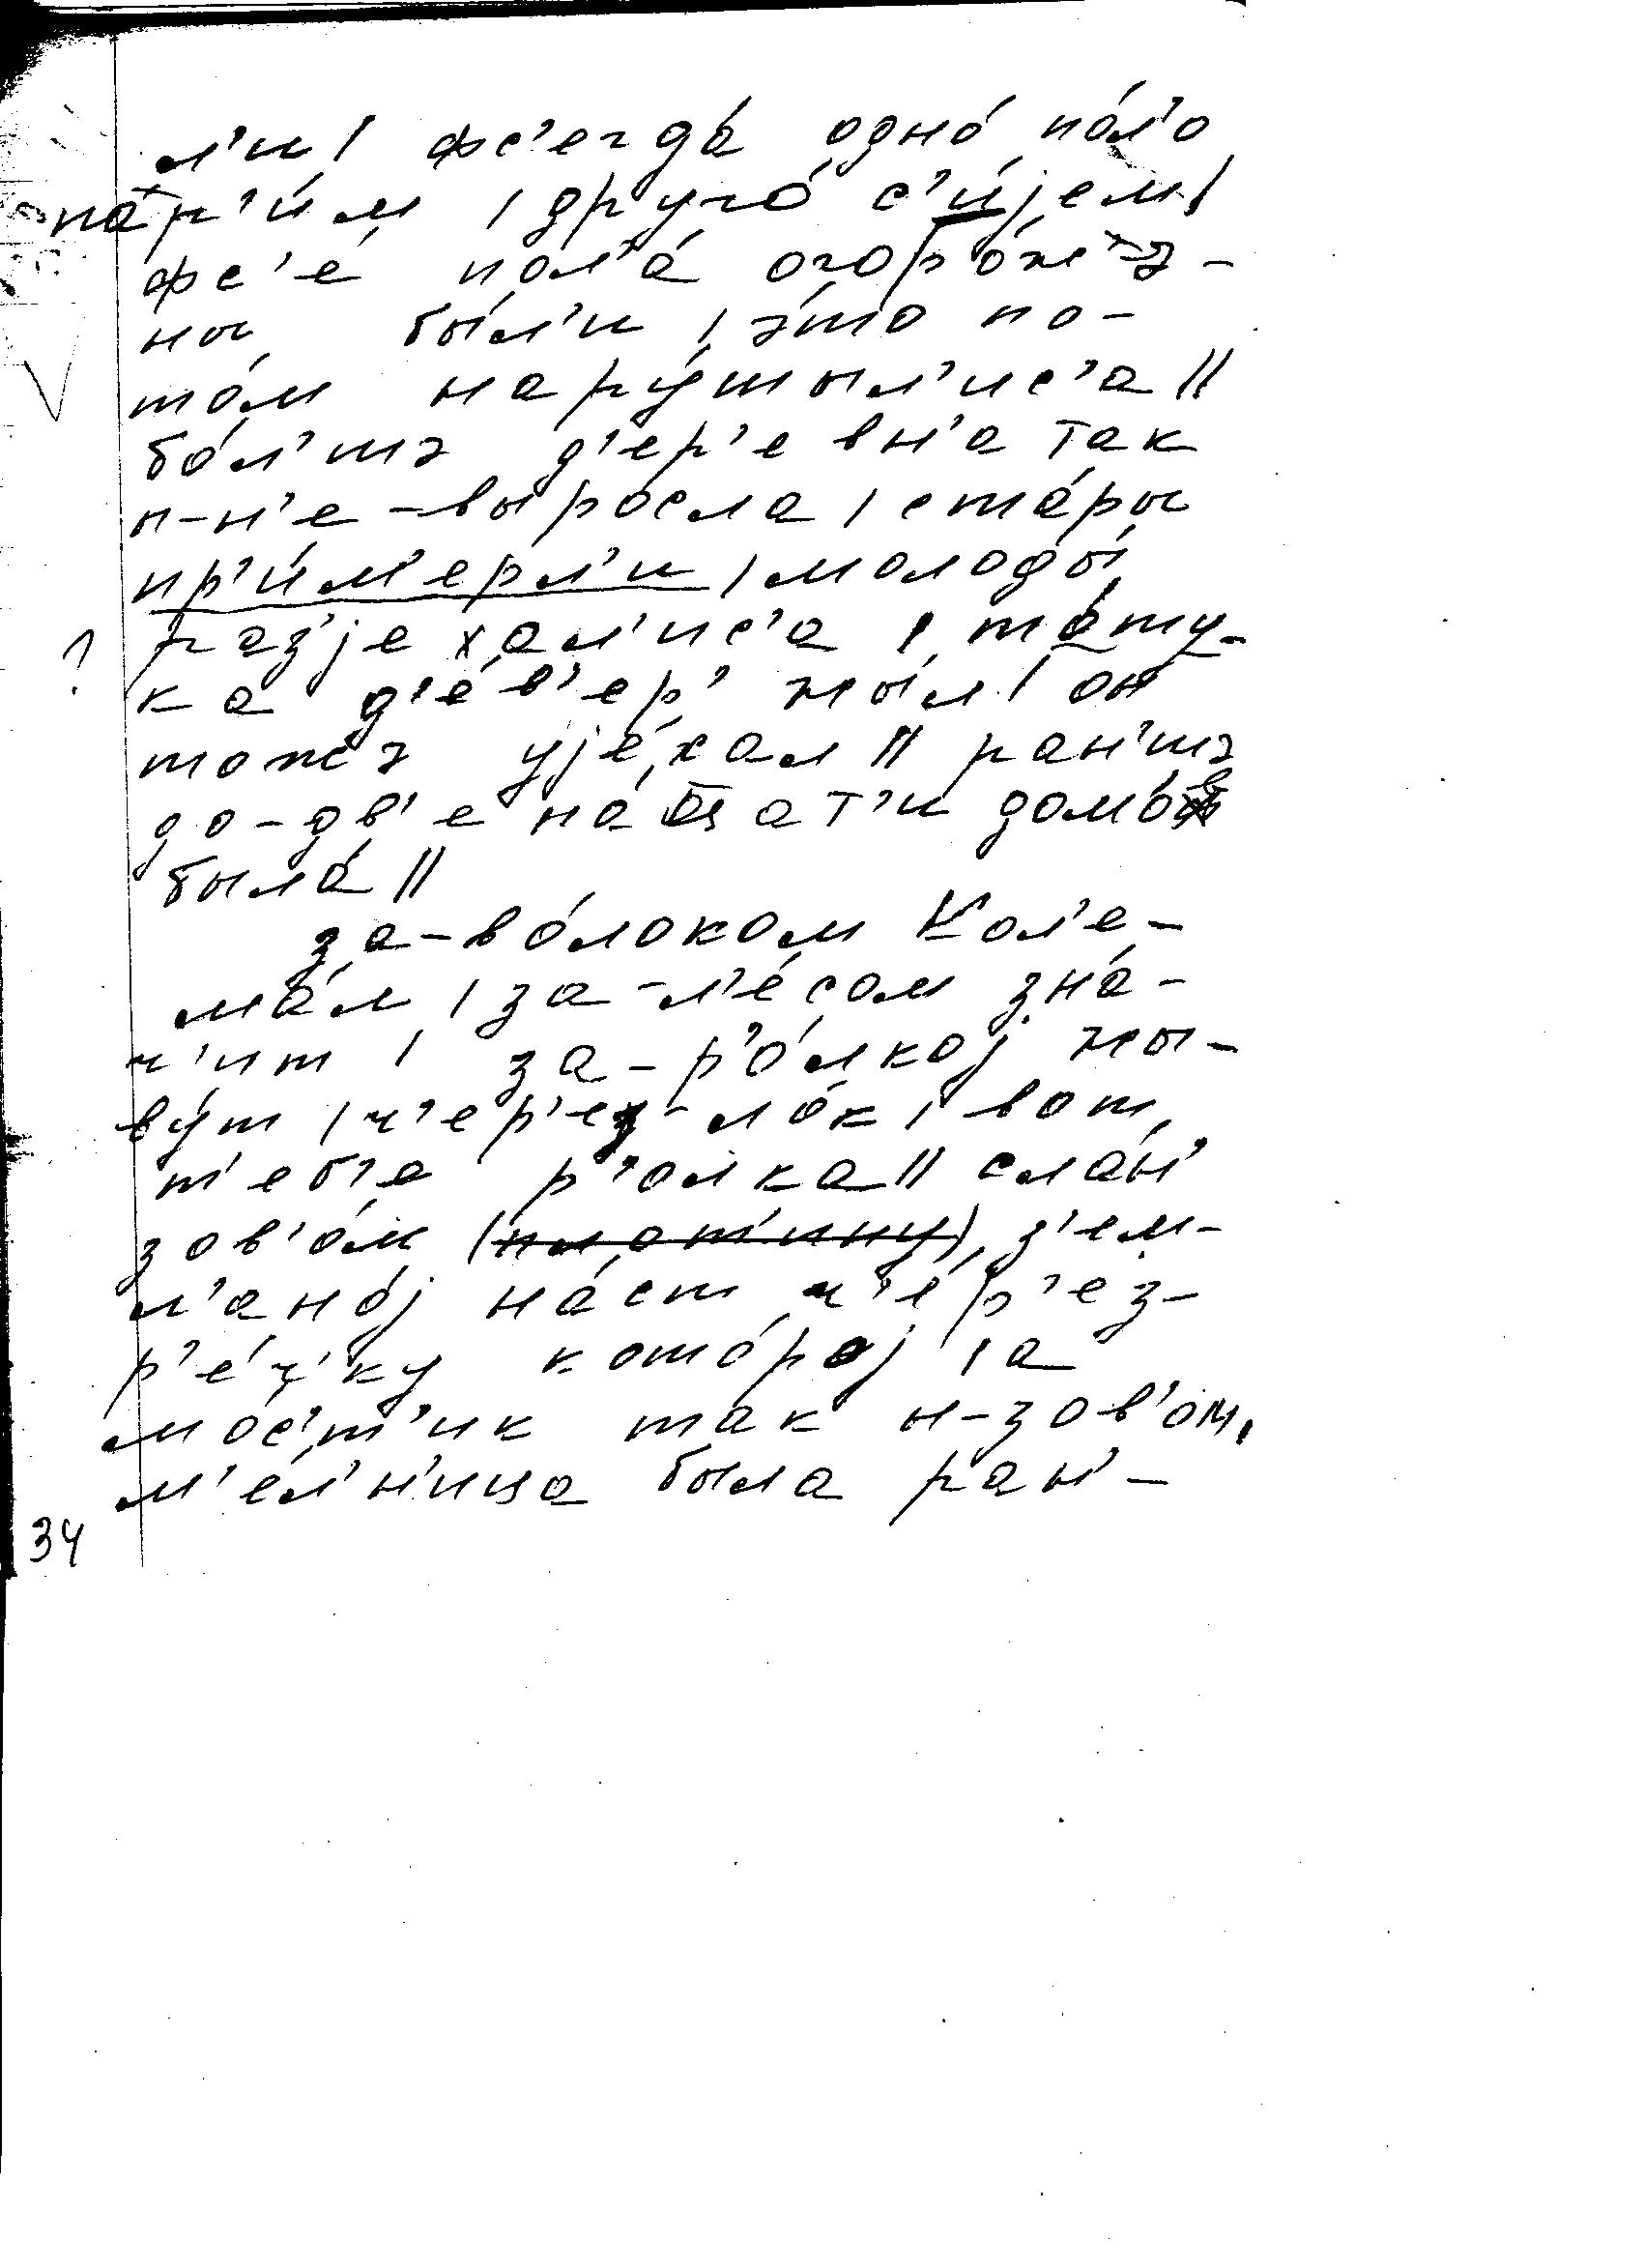 л'и / фс'егда́ одно́ по́л'о
па́р'им / друго́ с'и́јем /
фс'е́ пол'а́ огоро́жэ-
ны бы́л'и / э́то по-
то́м нару́шыл'ис'а //
бо́л'шэ д'ер'евн'а так
и-н'е-выросла / ста́ры
пр'и́м'ерл'и / молоды́
раз'јехал'ис'а /
ка д'е́в'ер' жы́л / он
тожэ ује́хал // ран'шэ
до-дв'ена́цат'и домо́в
была́ //
за-во́локом Кол'е-
ма́м / за-л'е́сом зна́-
ч'ит / за-р'о́лкој жы-
ву́т / ч'ер'ез-ло́к / вот
т'еб'е р'олка // сла́н'
зов'о́м (плот'ину) з'ем-
л'ано́ј на́ст ч'е́р'ез-
р'е́ч'ку кото́рој / а
мос'т'ик так и-зов'ом,
м'ел'н'ица была ран'-
34